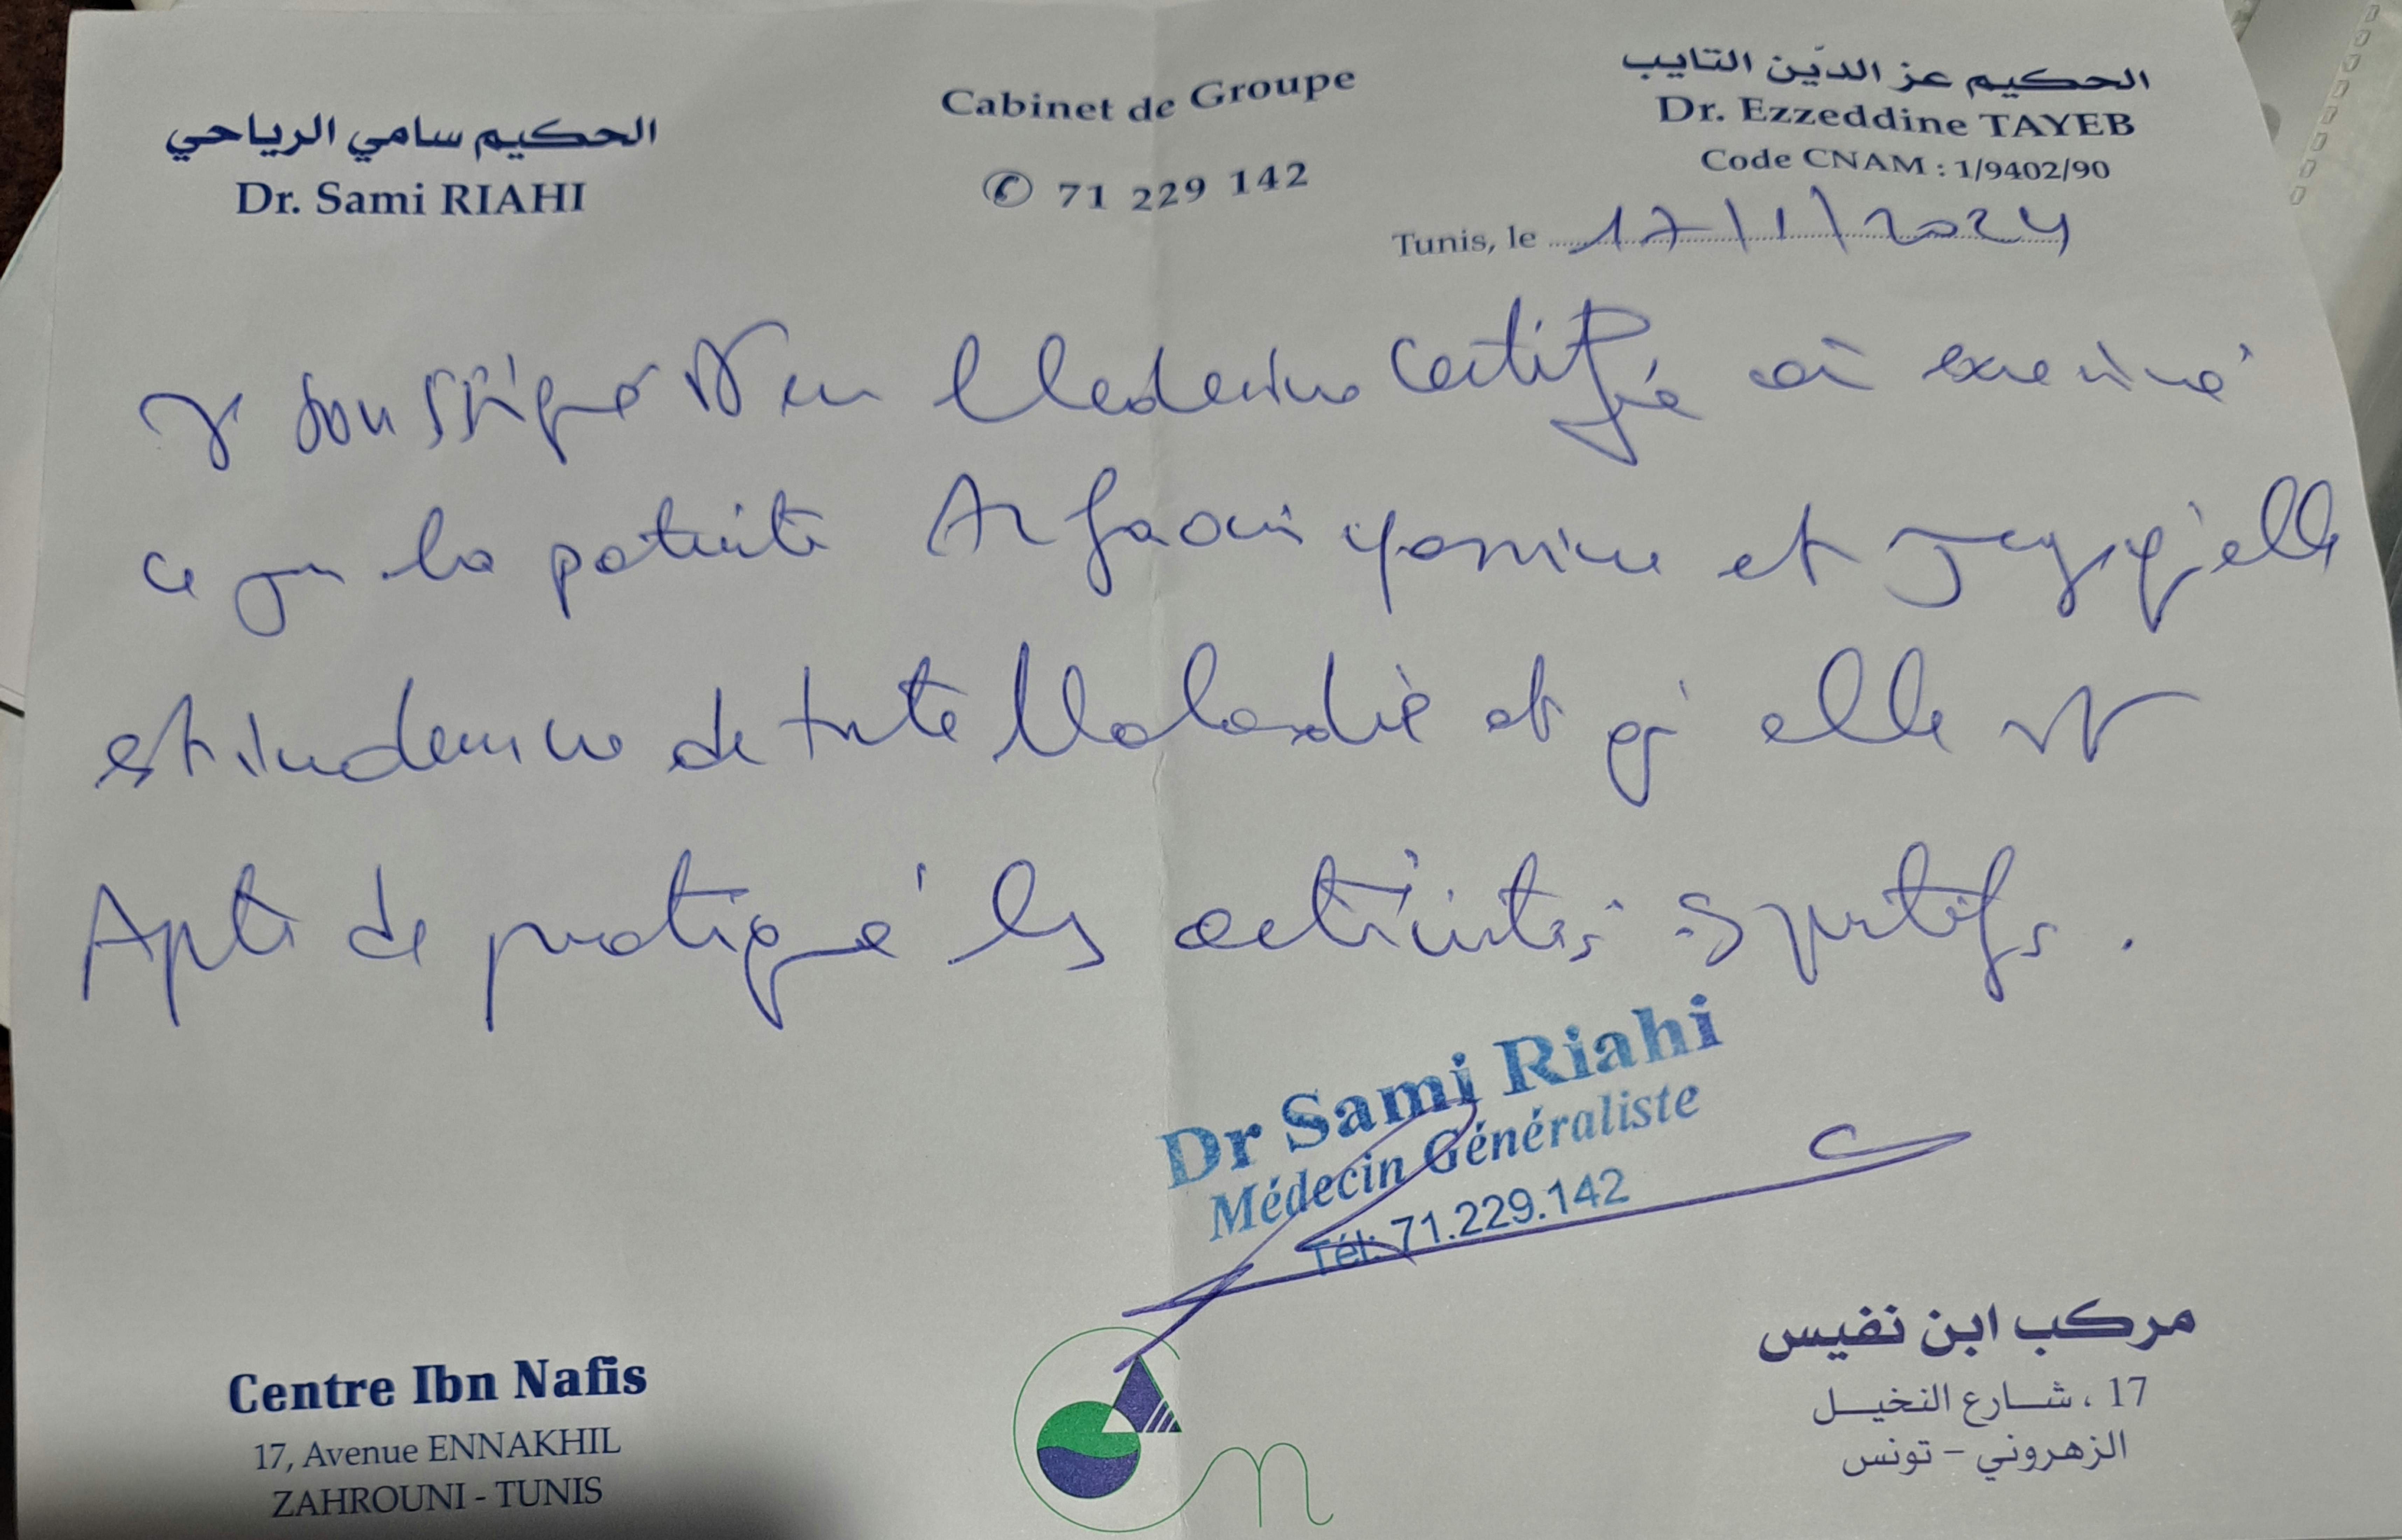 الحكيم سامي الرياحي
Dr. Sami RIAHI
Cabinet de Groupe
✆ 71 229 142
الحكيم عز الدّين التايب
Dr. Ezzeddine TAYEB
Code CNAM : 1/9402/90
Tunis, le 17/1/2024
Je soussigné Dr en Medecine certifié avoir examiné
ce jour la patiente Arfaoui yasmine et qu'elle
est indemne de toute Maladie et qu'elle est
Apte de pratiqué les activités sportifs.
Dr Sami Riahi
Médecin Généraliste
Tél: 71.229.142
Centre Ibn Nafis
17, Avenue ENNAKHIL
ZAHROUNI - TUNIS
مركب ابن نفيس
17 ، شـارع النخيـل
الزهروني - تونس